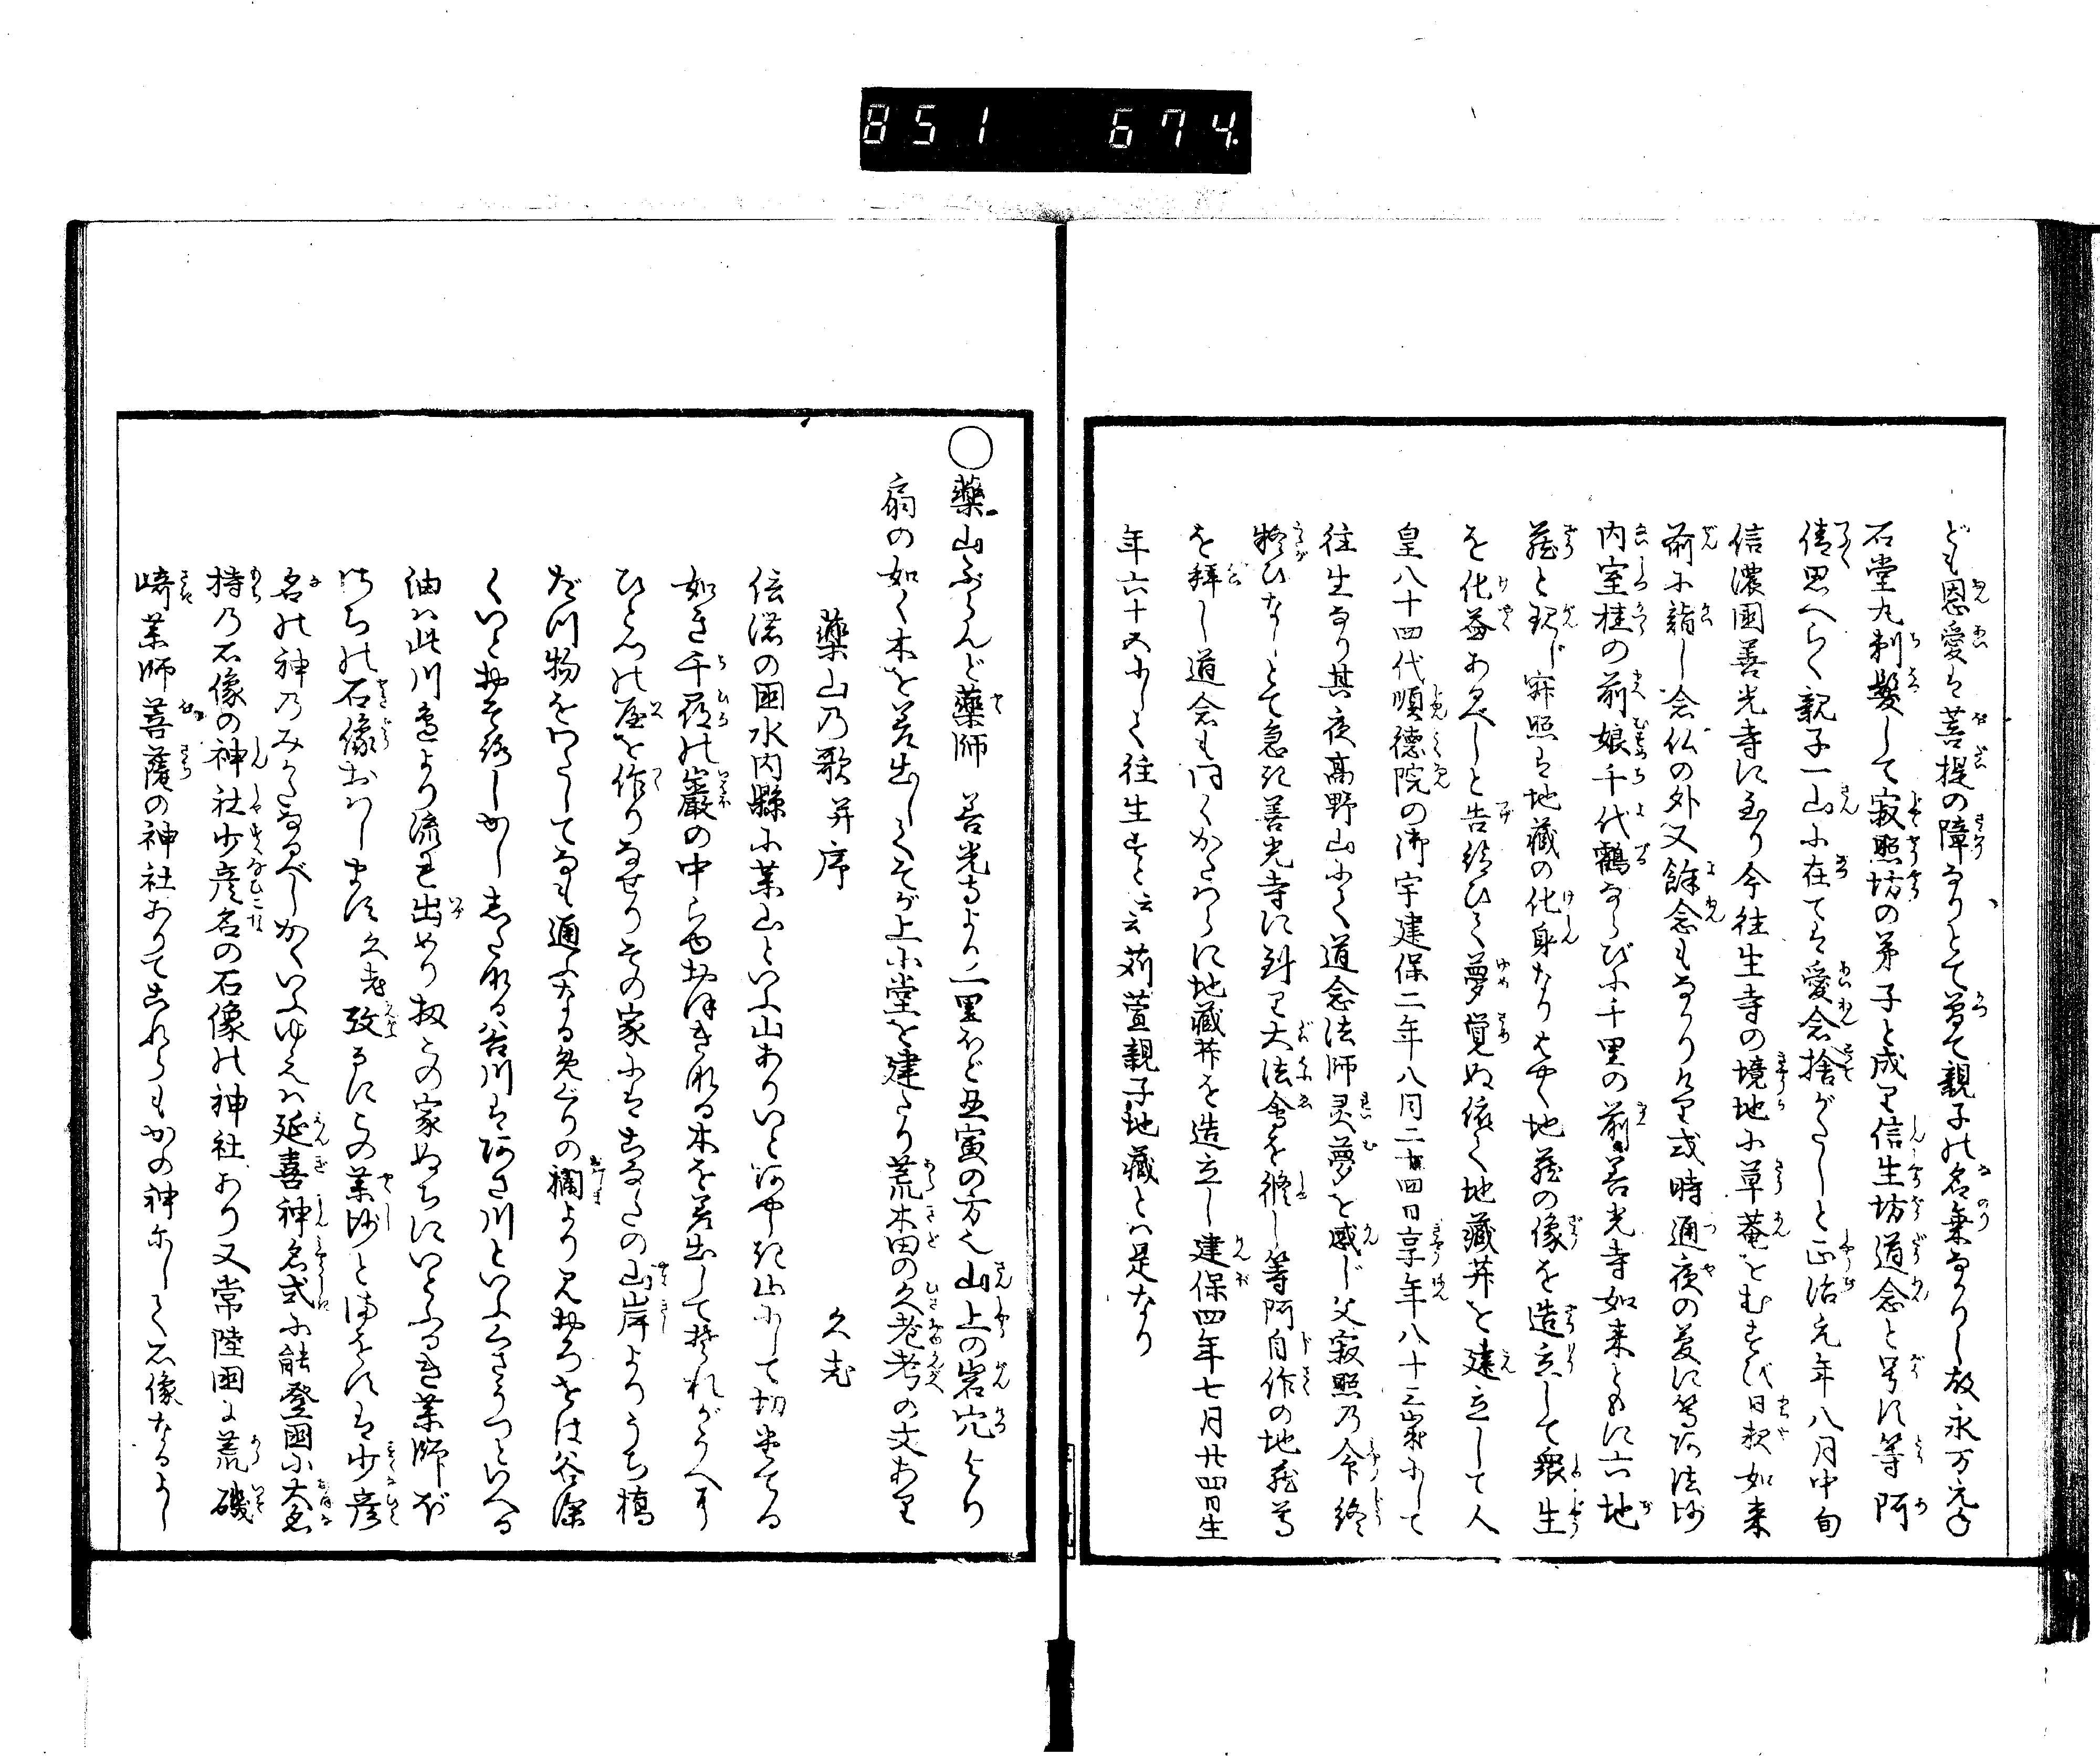 851 674.
ども恩愛は菩提の障なりとて曽て親子の名乗なかりし故永万元年
石堂丸剃髪して寂照坊の弟子と成り信生坊道念と号に等阿
倩思へらく親子一山に在ては愛念捨がたしと正治元年八月中旬
信濃國善光寺に至り今往生寺の境地に草菴をむすび日夜如来
前に詣し念仏の外又餘念もなかりけり或時通夜の夢に等阿法師
内室桂の前娘千代鶴ならびに千里の前善光寺如来ともに六地
蔵と現じ寂照は地藏の化身なりはやく地蔵の像を造立して衆生
を化益あるべしと告給ひて夢覚ぬ依て地藏井を建立して人
皇八十四代順徳院の御宇建保二年八月二十四日享年八十三歳にして
往生なり其夜高野山にて道念法師霊夢を感じ父寂照の命終
疑ひなしとて急に善光寺に到り大法會を修し等阿自作の地蔵尊
を拝し道念も同くかたはらに地藏井を造立し建保四年七月廿四日生
年六十五にして往生すと云云苅萱親子地藏とハ是なり
○薬山ぶらんど薬師 善光寺より二里ほど丑寅の方也山上の岩穴より
扇の如く木を差出してその上に堂を建たり荒木田の久老考の文あり
薬山乃歌并序
久老
信濃の國水内縣に薬山といふ山ありいとあやしき山にして切たてる
如き千尋の巖の中らゆおほきなる木を差出してそれがうへに
ひとつの屋を作りなせりその家にはこなたの山岸よりうち橋
だつ物をわたしてなも通ふなる其ぐりの欄より見おろせは谷深
くいとおそろしかししたなる谷川はあさ川といふくさうつといへる
油ハ此川邊より流れ出めり扨この家ぬちにいとふるき薬師ぶ
けちの石像おハします 久老 考るに此薬師と申をるは少彦
名の神のみかたなるべしかくいふゆえハ延喜神名式に能登國に大名
持乃石像の神社少彦名の石像の神社あり又常陸国に荒磯
崎薬師菩薩の神社ありてこれらもかの神にして石像なるよし